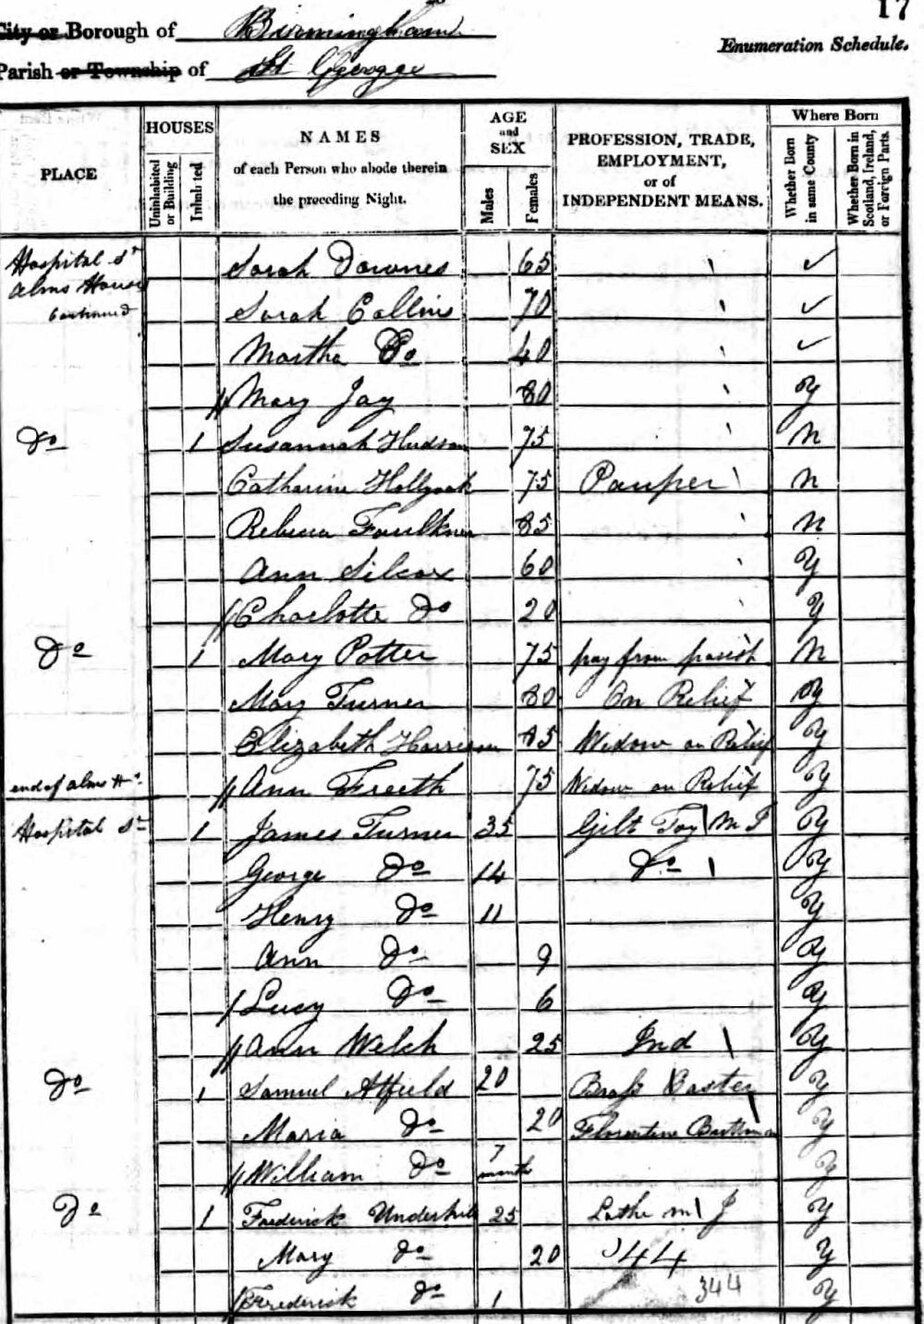 17
City or Borough of Birmingham
Enumeration Schedule.
Parish or Township of St George
PLACE
HOUSES
Uninhabited or Building
Inhabited
NAMES of each Person who abode therein the preceding Night.
AGE and SEX
Males
Females
PROFESSION, TRADE, EMPLOYMENT, or of INDEPENDENT MEANS.
Where Born
Whether Born in same County
Whether Born in Scotland, Ireland, or Foreign Parts.
Hospital St Sarah Downes 65 ✓
Alms House
continued Sarah Collins 70 ✓
Martha Do 40 ✓
Mary Jay 80 Y
Do 1 Susannah Hudson 75 N
Catharine 75 Pauper N
Rebecca Faulkner 85 N
Ann Silcox 60 Y
Charlotte Do 20 Y
Do 1 Mary Potter 75 pay from parish N
Mary Turner 80 On Relief Y
Elizabeth Harrison 85 Widow on Relief Y
end of Alms Hs Ann Freeth 75 Widow on Relief Y
Hospital St 1 James Turner 35 Gilt Toy M Y
George Do 14 Do Y
Henry Do 11 Y
Ann Do 9 Y
Lucy Do 6 Y
Ann Welch 25 Ind Y
Do 1 Samuel Atfield 20 Brass Caster Y
Maria Do 20 Florentine Button Y
William Do 7 month Y
Do 1 Frederick Underhill 25 Lathe m J Y
Mary Do 20 44 Y
344
Frederick Do 1 Y